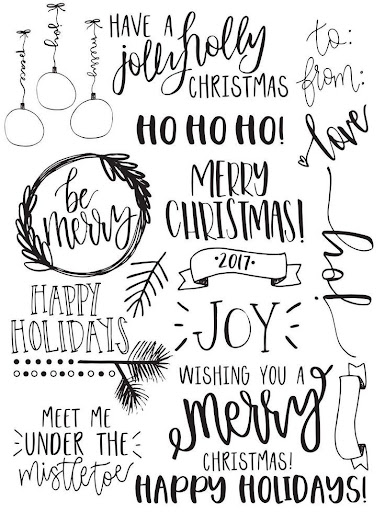 peace
joy
merry
HAVE A
jolly holly
CHRISTMAS
to:
from:
HO HO HO!
love
be
merry
MERRY
CHRISTMAS!
•2017•
joy
HAPPY
HOLIDAYS
JOY
WISHING YOU A
merry
CHRISTMAS!
MEET ME
UNDER THE
mistletoe
HAPPY HOLIDAYS!